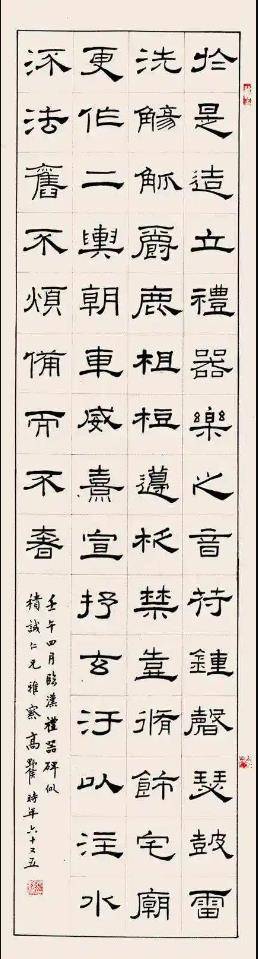 於是造立禮器樂之音符鍾磬瑟皷雷
洗觴觚爵鹿柤梪邊柉禁壺脩飾宅廟
更作二輿朝車威熹宣抒玄汙以注水
流法舊不煩備而不奢
壬午四月臨漢禮器碑似
積誠仁兄雅察 高 時年六十又五